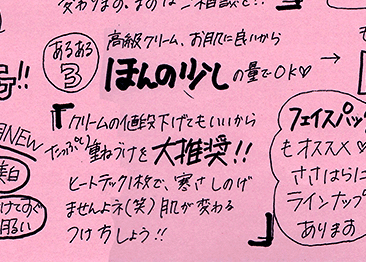 変わります。まずはご相談を!!
あるある3
高級クリーム、お肌に良いから
ほんの少しの量でOK♡
→
号!!
『クリームの値段下げてもいいから
たっぷり重ねづけを大推奨!!
ヒートテック1枚で、寒さしのげ
ませんよネ(笑)肌が変わる
つけ方しよう!!』
NEW
美白
けてすぐ
明るい
フェイスパッ
もオススメ♡
ささはらに
ラインナップ
あります